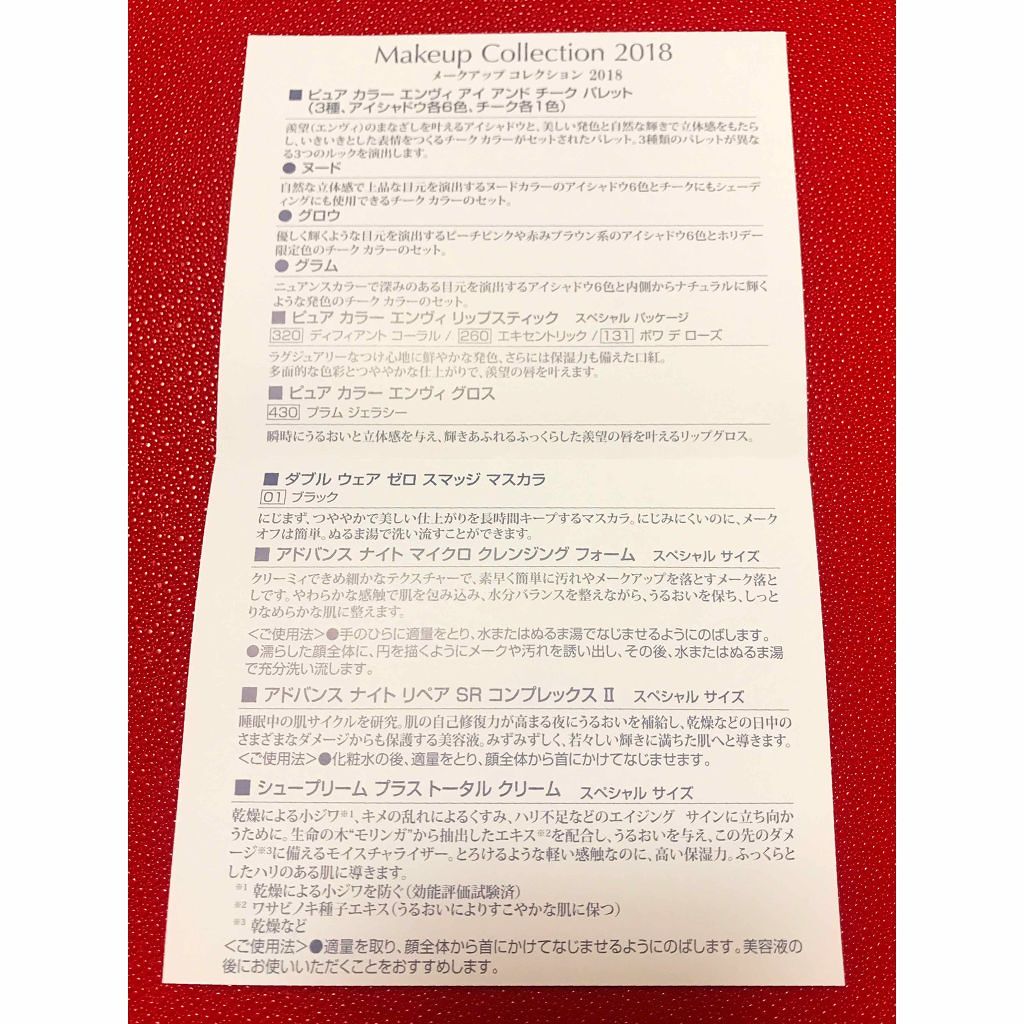 Makeup Collection 2018
メークアップ コレクション 2018
■ ピュア カラー エンヴィ アイ アンド チーク パレット
(3種、アイシャドウ各6色、チーク各1色)
羨望(エンヴィ)のまなざしを叶えるアイシャドウと、美しい発色と自然な輝きで立体感をもたら
し、いきいきとした表情をつくるチーク カラーがセットされたパレット。3種類のパレットが異な
る3つのルックを演出します。
● ヌード
自然な立体感で上品な目元を演出するヌードカラーのアイシャドウ6色とチークにもシェーデ
ィングにも使用できるチーク カラーのセット。
● グロウ
優しく輝くような目元を演出するピーチピンクや赤みブラウン系のアイシャドウ6色とホリデー
限定色のチーク カラーのセット。
● グラム
ニュアンスカラーで深みのある目元を演出するアイシャドウ6色と内側からナチュラルに輝く
ような発色のチーク カラーのセット。
■ ピュア カラー エンヴィ リップスティック スペシャル パッケージ
320 ディファイアント コーラル / 260 エキセントリック / 131 ボワ デ ローズ
ラグジュアリーなつけ心地に鮮やかな発色、さらには保湿力も備えた口紅。
多面的な色彩とつややかな仕上がりで、羨望の唇を叶えます。
■ ピュア カラー エンヴィ グロス
430 プラム ジェラシー
瞬時にうるおいと立体感を与え、輝きあふれるふっくらした羨望の唇を叶えるリップグロス。
■ ダブル ウェア ゼロ スマッジ マスカラ
01 ブラック
にじまず、つややかで美しい仕上がりを長時間キープするマスカラ。にじみにくいのに、メーク
オフは簡単。ぬるま湯で洗い流すことができます。
■ アドバンス ナイト マイクロ クレンジング フォーム スペシャル サイズ
クリーミィできめ細かなテクスチャーで、素早く簡単に汚れやメークアップを落とすメーク落と
しです。やわらかな感触で肌を包み込み、水分バランスを整えながら、うるおいを保ち、しっと
りなめらかな肌に整えます。
<ご使用法>●手のひらに適量をとり、水またはぬるま湯でなじませるようにのばします。
●濡らした顔全体に、円を描くようにメークや汚れを誘い出し、その後、水またはぬるま湯
で充分洗い流します。
■ アドバンス ナイト リペア SR コンプレックス Ⅱ スペシャル サイズ
睡眠中の肌サイクルを研究。肌の自己修復力が高まる夜にうるおいを補給し、乾燥などの日中の
さまざまなダメージからも保護する美容液。みずみずしく、若々しい輝きに満ちた肌へと導きます。
<ご使用法>●化粧水の後、適量をとり、顔全体から首にかけてなじませます。
■ シュープリーム プラス トータル クリーム スペシャル サイズ
乾燥による小ジワ※1、キメの乱れによるくすみ、ハリ不足などのエイジング サインに立ち向か
うために。生命の木“モリンガ”から抽出したエキス※2を配合し、うるおいを与え、この先のダメ
ージ※3に備えるモイスチャライザー。とろけるような軽い感触なのに、高い保湿力。ふっくらと
したハリのある肌に導きます。
※1 乾燥による小ジワを防ぐ(効能評価試験済)
※2 ワサビノキ種子エキス(うるおいによりすこやかな肌に保つ)
※3 乾燥など
<ご使用法>●適量を取り、顔全体から首にかけてなじませるようにのばします。美容液の
後にお使いいただくことをおすすめします。